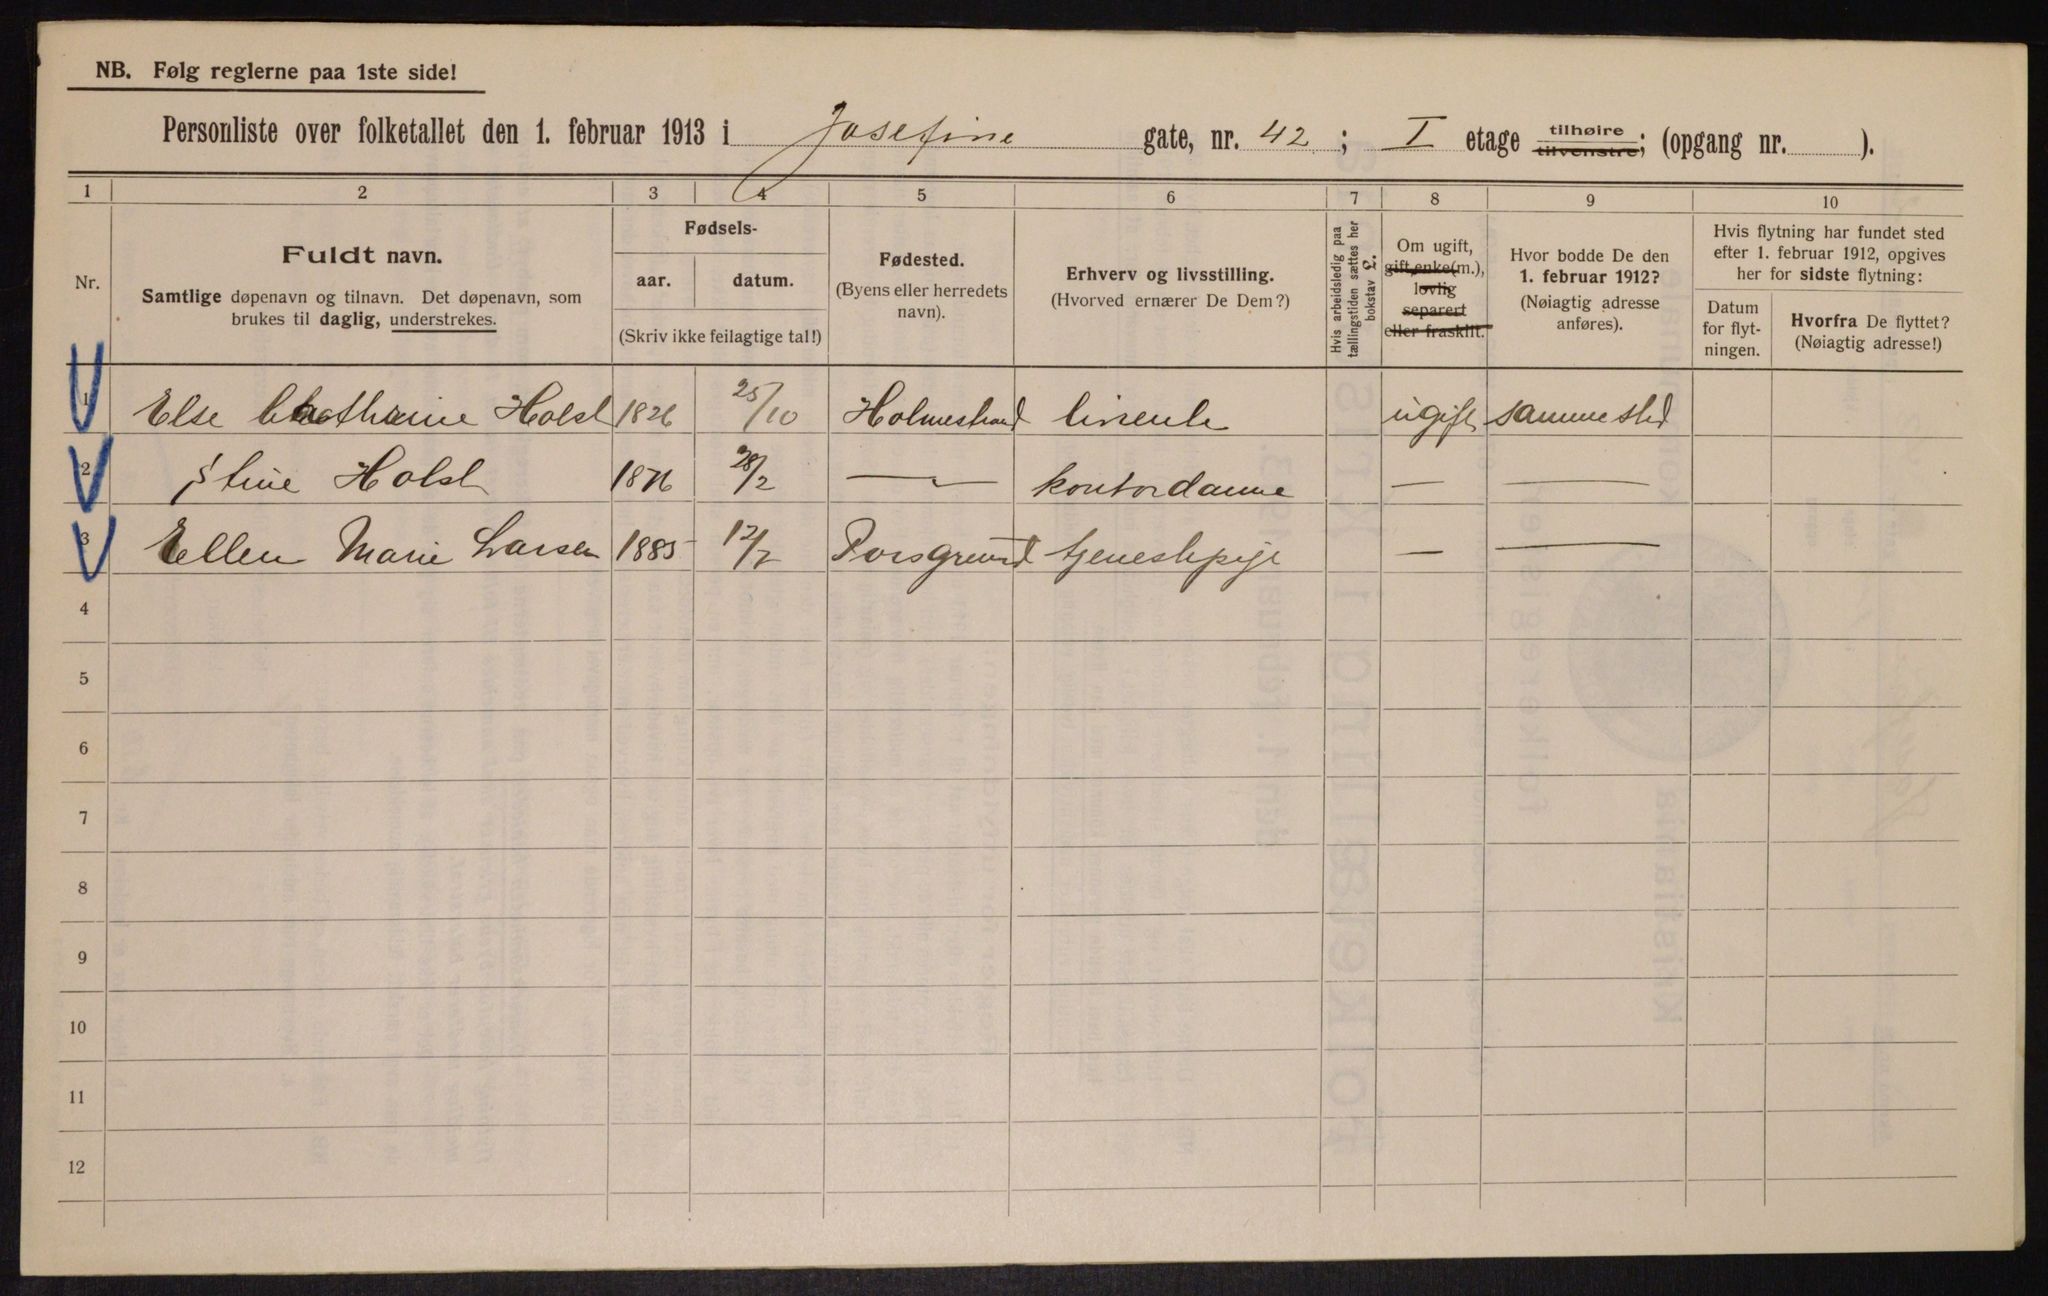 NB. Følg reglerne paa 1ste side!
Personliste over folketallet den 1. februar 1913 i Josefine gate, nr. 42; I etage tilhøire tilvenstre; (opgang nr. ).
1 2 3 4 5 6 7 8 9 10
Nr.
Fuldt navn.
Samtlige døpenavn og tilnavn. Det døpenavn, som
brukes til daglig, understrekes.
Fødsels-
aar. datum.
(Skriv ikke feilagtige tal!)
Fødested.
(Byens eller herredets
navn).
Erhverv og livsstilling.
(Hvorved ernærer De Dem?)
Hvis arbeidsledig paa
tællingstiden sættes her
bokstav L.
Om ugift,
gift, enke(m.),
lovlig
separert
eller fraskilt.
Hvor bodde De den
1. februar 1912?
(Nøiagtig adresse
anføres).
Hvis flytning har fundet sted
efter 1. februar 1912, opgives
her for sidste flytning:
Datum
for flyt-
ningen.
Hvorfra De flyttet?
(Nøiagtig adresse!)
1 Else Cathrine Holst 1826 25/10 Holmestrand ugift samme sted
2 Stine Holst 1876 28/2 — kontordame — —
3 Ellen Marie Larsen 1885 12/2 Porsgrund tjenestepige — —
4
5
6
7
8
9
10
11
12